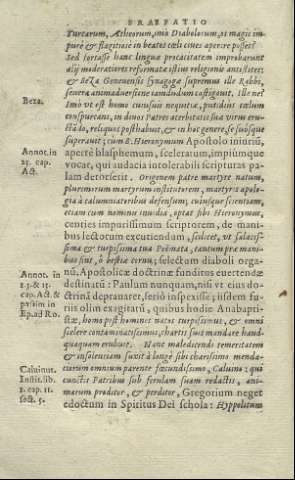 PRAEFATIO
Turcarum, Atheorum, imò Diabolorum, vt magis im-
purè & flagitiosè in beatos cœli ciues aperire posset?
Sed fortasse hanc linguæ procacitatem improbarunt
alij moderatores reformatæ istius religionis antistites:
& BeZa Geneuensis Synagogæ supremus ille Rabbi,
seuera animaduersione iamdudum castigauit. Ille ne?
Imò vt est homo cuiusuis nequitiæ, putidius cœlum
conspurcans, in diuos Patres acerbitatis suæ virus eru-
ctado, reliquos posthabuit, & in hoc genere, se suosque
superauit; cum B. Hieronymum Apostolo iniuriū,
apertè blasphemum, sceleratum, impiumque
vocat, qui audacia intolerabili scripturas pa-
lam detorserit. Origenem patre martyre natum,
plurimorum martyrum institutorem, martyris apolo-
gia à calumniatoribus defensum, cuiusque scientiam,
etiam cum nominis inuidia, optat sibi Hieronymus,
centies impurissimum scriptorem, de mani-
bus lectorum excutiendum, scilicet, vt salacis-
sima & turpissima tua Poëmata, tantum præ mani-
bus sint, ô bestia cernu; selectum diaboli orga-
nū, Apostolicæ doctrinæ funditus euertendæ
destinatū: Paulum nunquam, nisi vt eius do-
ctrinā deprauaret, seriò inspexisse; iisdem fu-
riis olim exagitatū, quibus hodie Anabapti-
stæ, homo post hominis natos turpissimus, & omni
scelere contaminatissimus, chartis suis mandare haud-
quaquam erubuit. Hanc maledicendi temeritatem
& insolentiam suxit à longè sibi charissimo menda-
ciorum omnium parente fœcundissimo, Caluino: qui
cunctis Patribus sub ferulam suam redactis, ani-
marum proditor, & perditor, Gregorium neget
edoctum in Spiritus Dei schola: Hyppolitum
Beza.
Annot. in
25. cap.
Act.
Annot. in
Act. &
passim in
Ep. ad Ro.
Caluinus.
Instit. lib.
cap. 11.
sect. 5.